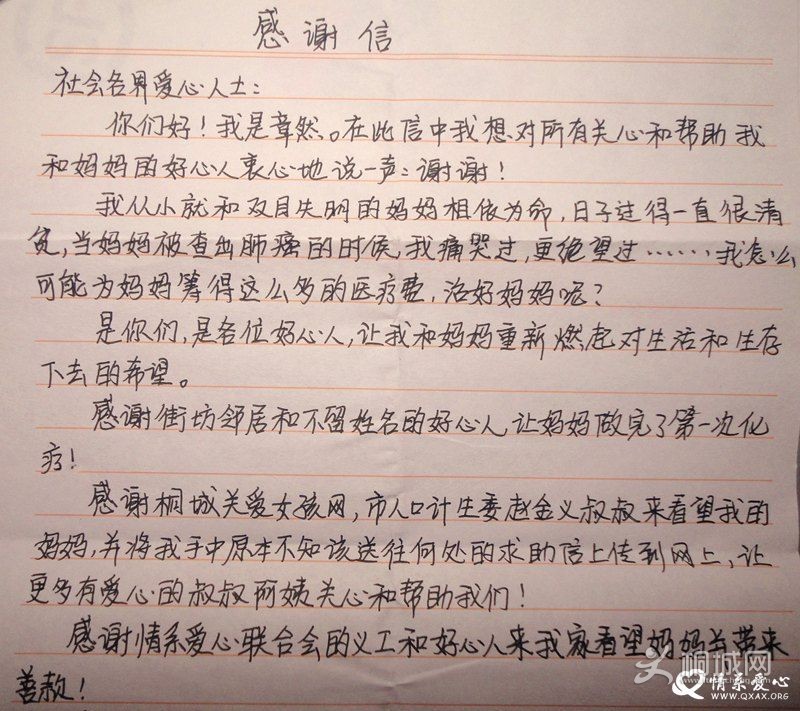 感谢信
社会各界爱心人士：
你们好！我是章然。在此信中我想对所有关心和帮助我
和妈妈的好心人衷心地说一声：谢谢！
我从小就和双目失明的妈妈相依为命，日子过得一直很清
贫，当妈妈被查出肺癌的时候，我痛哭过，更绝望过……我怎么
可能为妈妈筹得这么多的医疗费，治好妈妈呢？
是你们，是各位好心人，让我和妈妈重新燃起对生活和生存
下去的希望。
感谢街坊邻居和不留姓名的好心人让妈妈做完了第一次化
疗！
感谢桐城关爱女孩网，市人口计生委赵金义叔叔来看望我的
妈妈，并将我手中原本不知该送往何处的求助信上传到网上，让
更多有爱心的叔叔阿姨关心和帮助我们！
感谢情系爱心联合会的义工和好心人来我家看望妈妈并带来
善款！
桐城网
情系爱心
WWW.QXAX.ORG